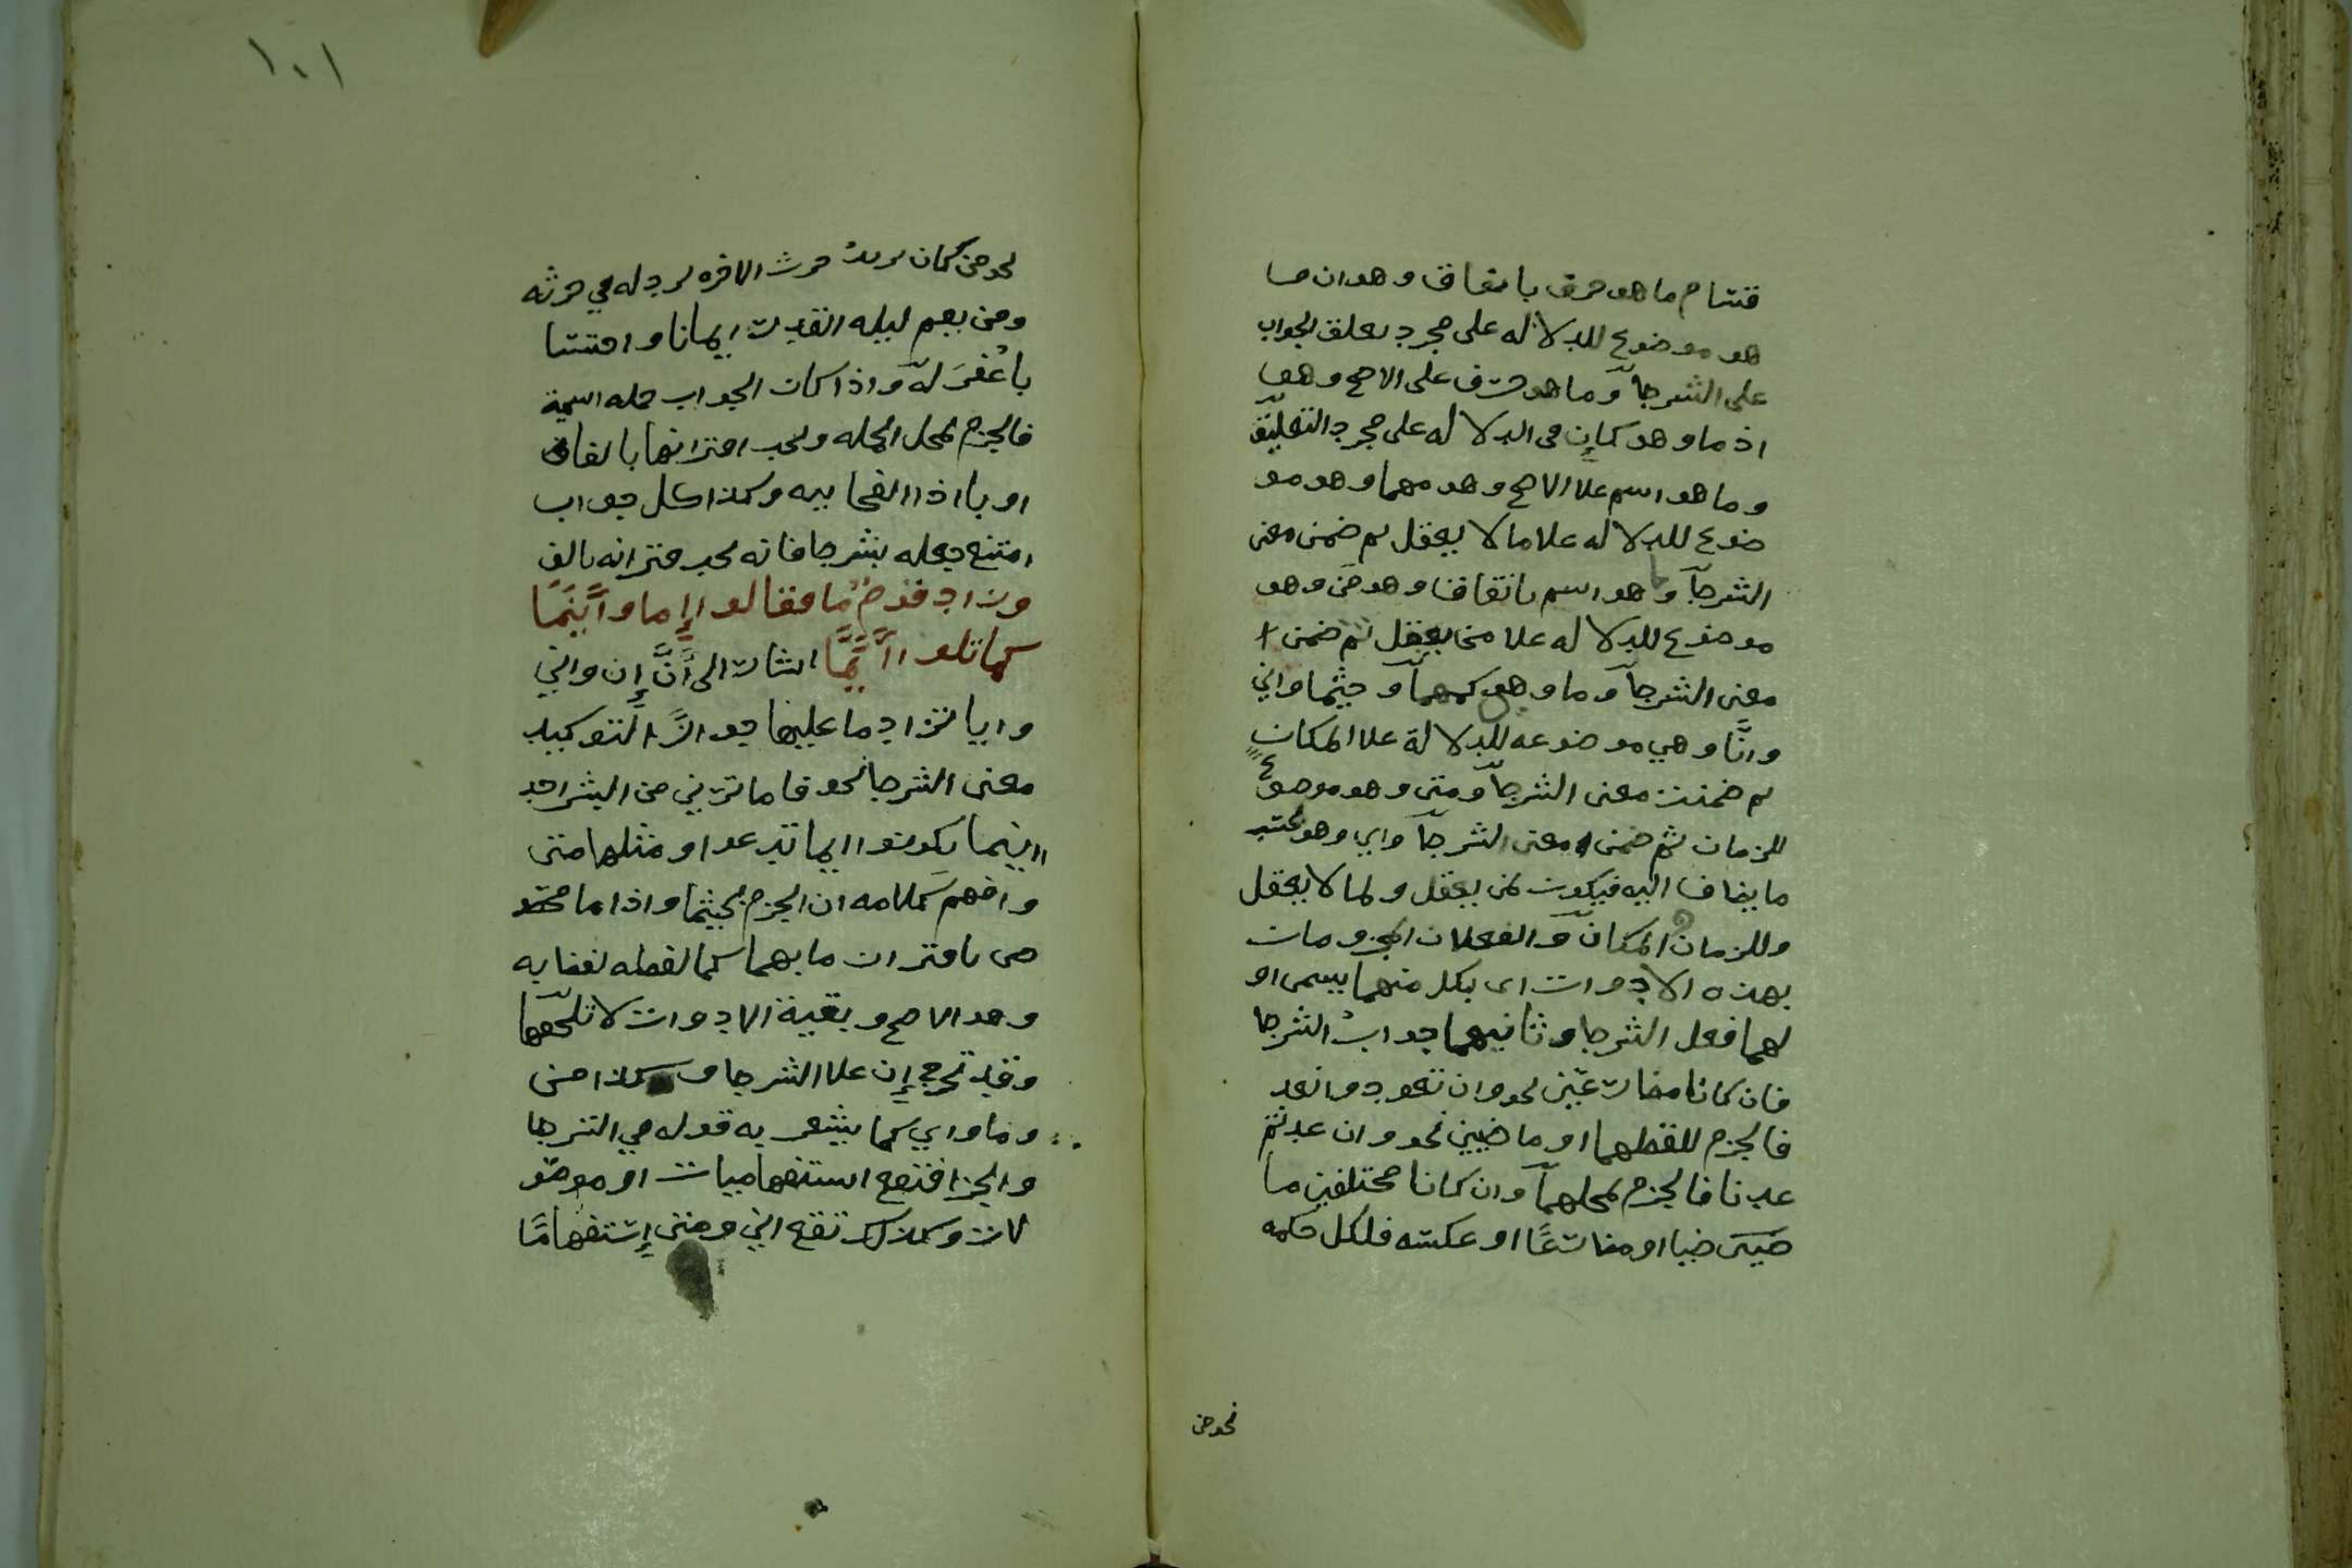 قتسام ما هو حرف باتفاق وهوان مسا
هو موضوع للدلا له على مجرد تعلق الجواب
على الشرطا وما هو حرف على الاصح وهو
اذ ما وهو كإن في الدلا له على مجرد التعليق
وما هو اسم علا الاصح وهو مهما وهو مو
ضوع للدلا له علا ما لا يعقل ثم ضمن معنى
الشرطا وما هو اسم باتفاقا وهو من وهو
موضوع للدلا له علا من يعقل ثم ضمن
معنى الشرطا وما وهو كمهما وحيثما واني
وانا وهي موضوعه للدلالة علا المكان
ثم ضمنت معنى الشرطا ومتى وهو موضوع
للزمان ثم ضمن معنى الشرطا واي وهو بحسب
ما يضاف اليه فيكون لمن يعقل ولما لا يعقل
وللزمان والمكان والفعلان المجزومات
بهذه الادوات اى بكل منهما يسمى او
لهما فعل الشرطا وثانيهما جواب الشرطا
فان كانا مضارعين نحو وان تعود وا نعد
فالجزم للفظهما او ماضيين نحو وان عدتم
عدنا فالجزم لمحلهما وان كانا مختلفين ما
ضيا او مضارعًا او عكسه فلكل حكمه
نحو من
١٠١
نحو من كان يريد حرث الاخره نزد له في حرثه
ومن يقم ليله القدر ايمانا واحتسا
با غُفرَ له واذا كان الجواب جمله اسمية
فالجزم لمحل الجمله ويجب اقترانها بالفاء
او با اذا الفجاييه وكذا كل جواب
امتنع جعله بشرطا فانه يجب قترانه بالف
وزاد قوم ما فقالوا إما واينما
كما تلوا ايما اشارت الى أنَّ إن واني
وايا تزاد ما عليها جوازًا لتوكيد
معنى الشرطا نحو فاما ترين من البشر احد
اينما تكونوا ايما تدعوا ومثلها متى
وافهم كلامه ان الجزم بحيثما واذا ما مخصو
ص باقتران ما بهما كما لفظه لفضايه
وهو الاصح وبقية الادوات لا تلحقها
وقد تخرج إن علا الشرطا وكذا من
وما واي كما يشعر به قوله في الشرطا
والجزا فتقع استفهاميات او موصو
لات وكذلك تقع اني ومتى إستفهامًا